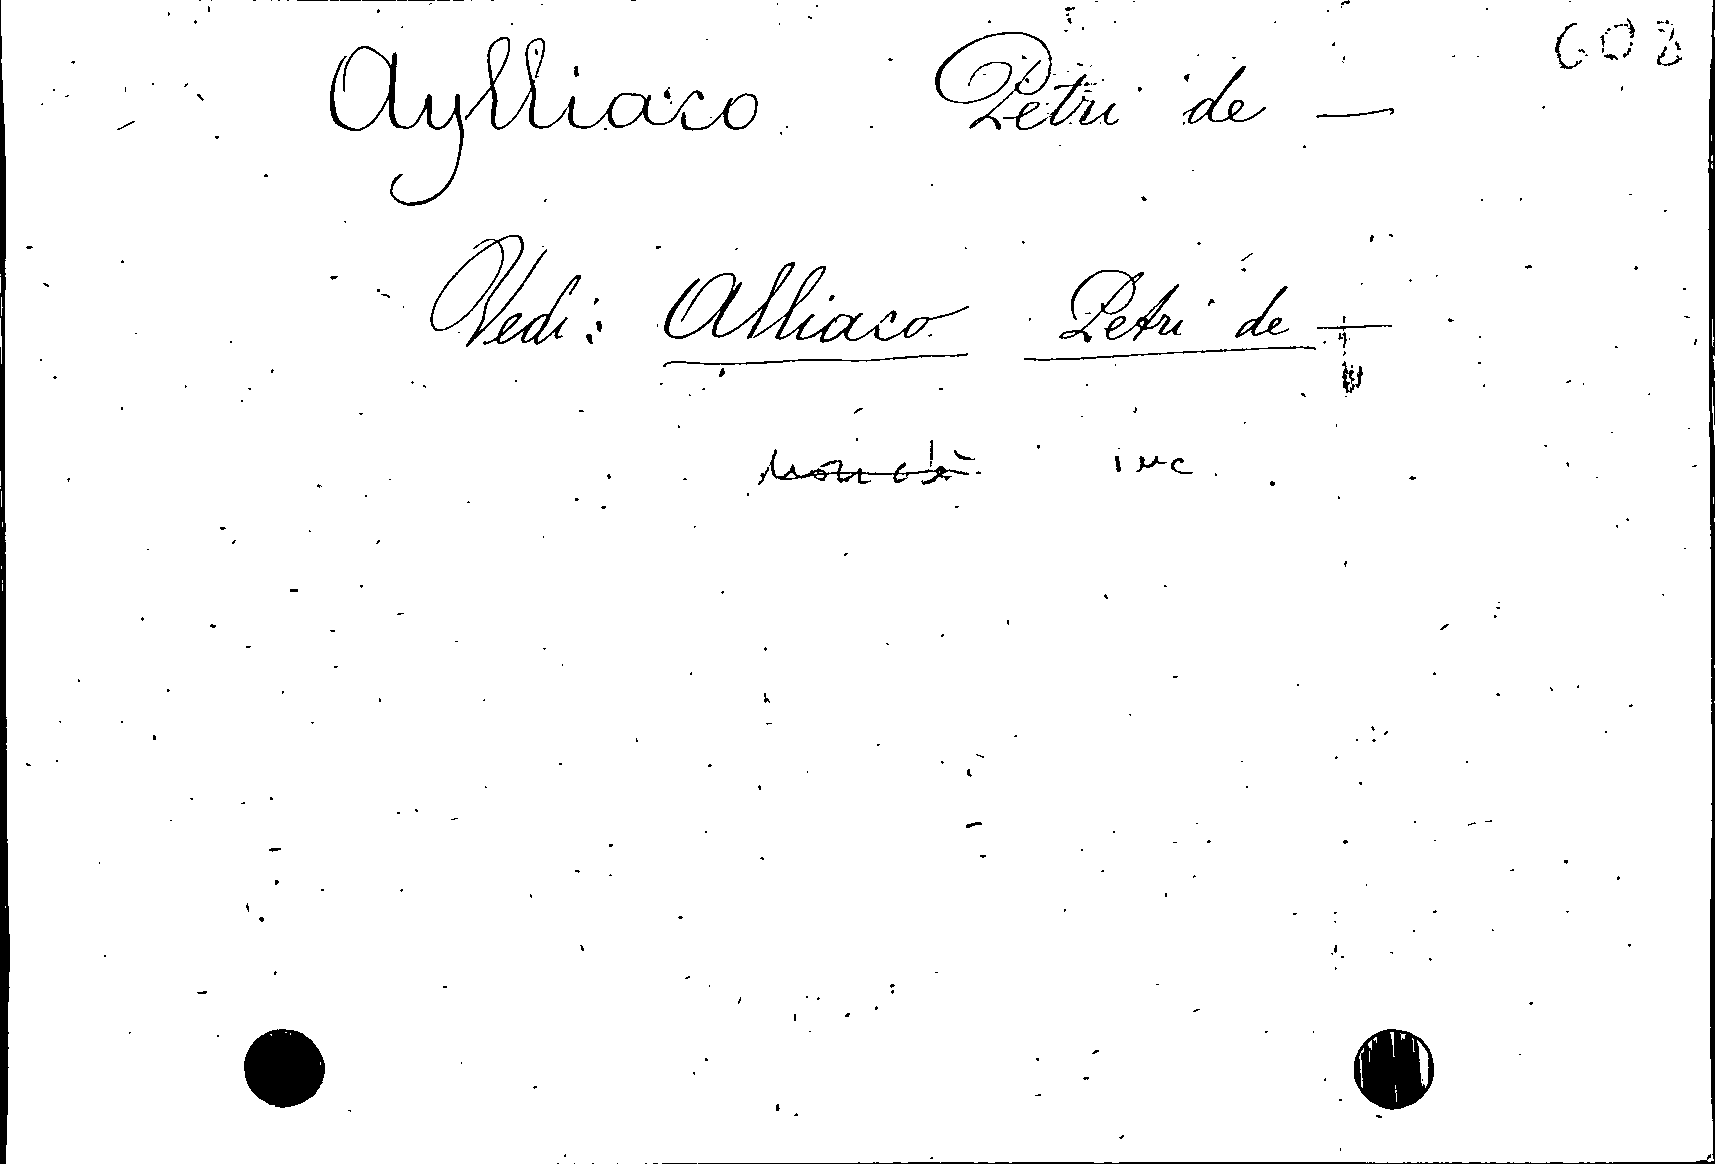 608
Aylliaco Petri de —
Vedi: Alliaco Petri de —
non c'è inc